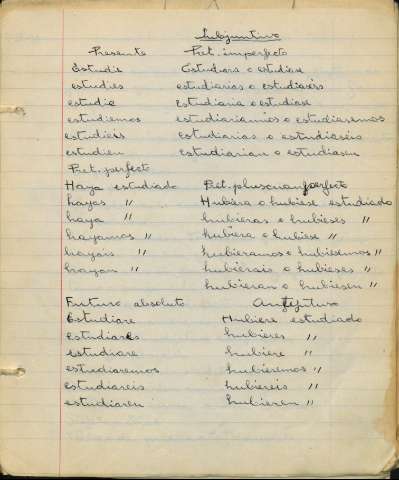 Subjuntivo
Presente Pret. imperfecto
Estudie Estudiara o estudiase
estudies estudiarias o estudiases
estudie estudiaria o estudiase
estudiemos estudiariamos o estudiasemos
estudieis estudiarias o estudiaseis
estudien estudiarian o estudiasen
Pret. perfecto
Haya estudiado Pret. pluscuamperfecto
hayas " Hubiera o hubiese estudiado
haya " hubieras o hubieses "
hayamos " hubiera o hubiese "
hayais " hubieramos o hubiesemos "
hayan " hubierais o hubieses "
hubieran o hubiesen "
Futuro absoluto Antefuturo
Estudiare Hubiere estudiado
estudiares hubieres "
estudiare hubiere "
estudiaremos hubieremos "
estudiareis hubiereis "
estudiaren hubieren "